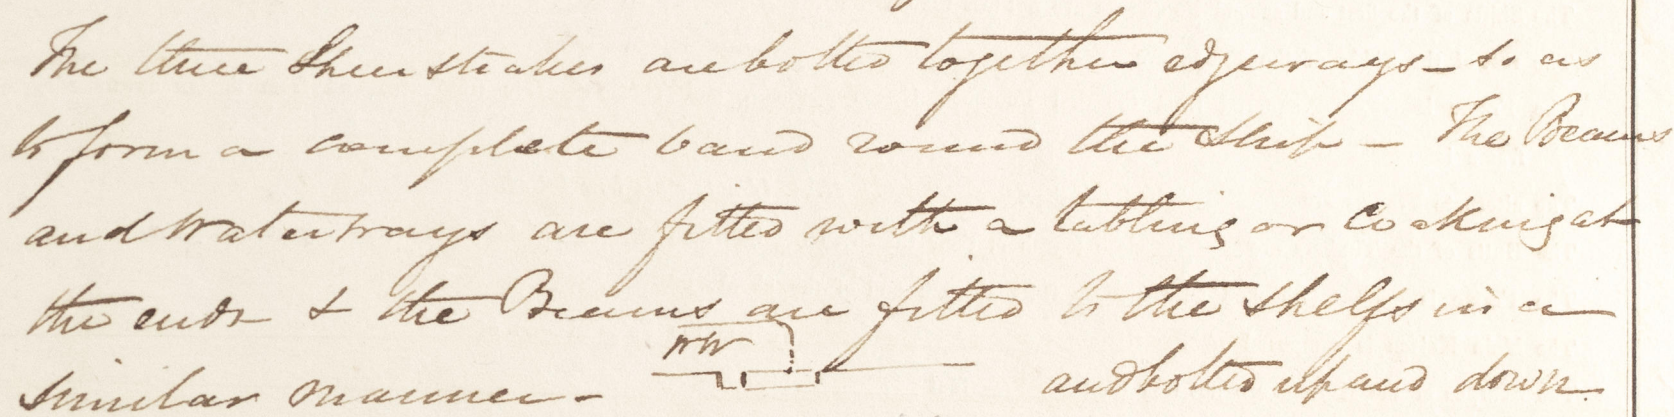 The three Sheerstrakes are bolted together edgeways – so as
to form a complete band round the Ship – The Beams
and Waterways are fitted with a tabling or Coaking at
the ends & the Beams are fitted to the Shelfs in a
WW
similar manner – and bolted up and down.